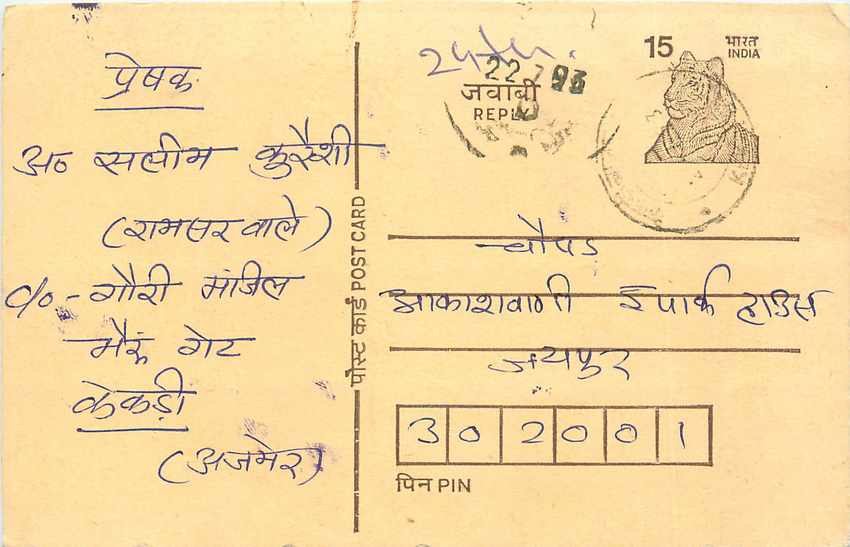 प्रेषक
अ० सलीम कुरैशी
(रामसर वाले)
c/o - गौरी मंजिल
भैरूं गेट
केकड़ी
(अजमेर)
पोस्ट कार्ड POST CARD
22 7 93
जवाबी
REPLY
15
भारत
INDIA
चौपड
आकाशवाणी स्पार्क हाउस
जयपुर
302001
पिन PIN